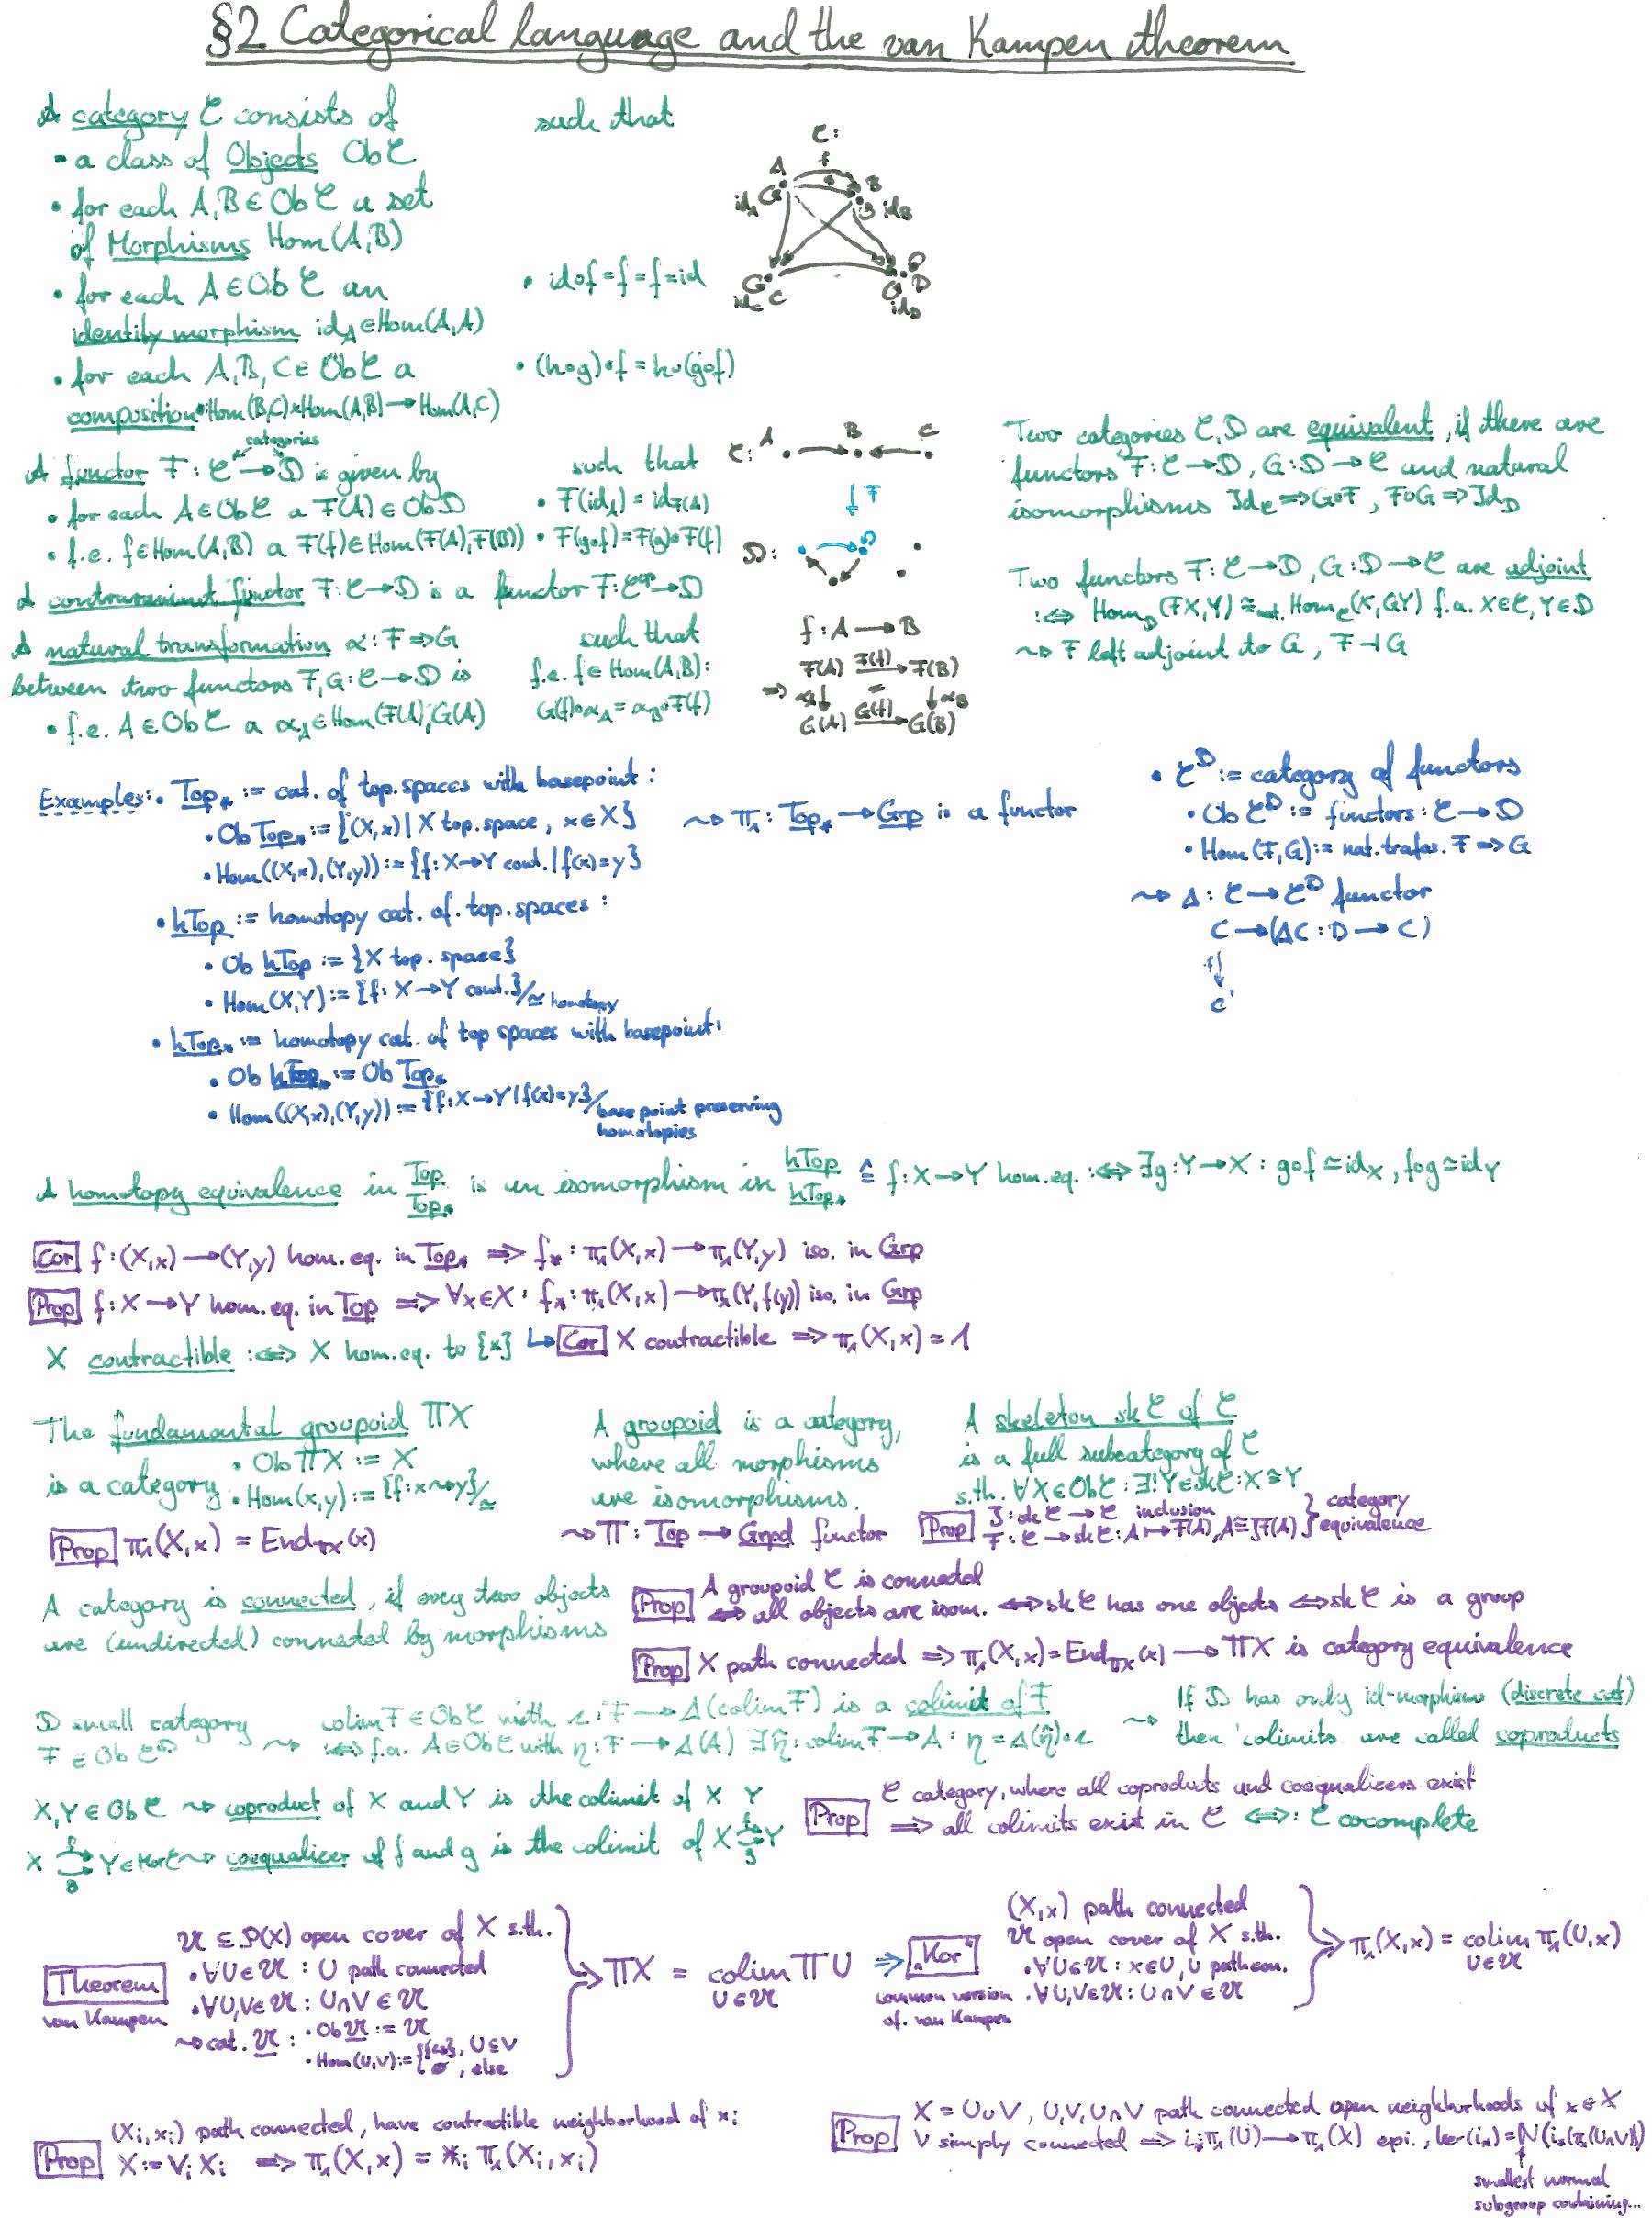 §2 Categorical language and the van Kampen theorem
A category 𝒞 consists of
• a class of Objects Ob𝒞
• for each A,B∈Ob𝒞 a set
of Morphisms Hom(A,B)
• for each A∈Ob𝒞 an
identity morphism id_A∈Hom(A,A)
• for each A,B,C∈Ob𝒞 a
composition∘:Hom(B,C)×Hom(A,B)→Hom(A,C)
such that
• id∘f=f=f=id
• (h∘g)∘f=h∘(g∘f)
𝒞:
A
f
B
id_A
id_B
C
D
id_C
id_D
categories
A functor F:𝒞→𝒟 is given by
• for each A∈Ob𝒞 a F(A)∈Ob𝒟
• f.e. f∈Hom(A,B) a F(f)∈Hom(F(A),F(B))
such that
• F(id_A)=id_F(A)
• F(g∘f)=F(g)∘F(f)
𝒞: A B C
F
𝒟:
A contravariant functor F:𝒞→𝒟 is a functor F:𝒞^op→𝒟
A natural transformation α:F⇒G
between two functors F,G:𝒞→𝒟 is
• f.e. A∈Ob𝒞 a α_A∈Hom(F(A),G(A))
such that
f.e. f∈Hom(A,B):
G(f)∘α_A=α_B∘F(f)
f:A→B
F(A) F(f)→ F(B)
⇒ α_A↓ = ↓α_B
G(A) G(f)→ G(B)
Two categories 𝒞,𝒟 are equivalent, if there are
functors F:𝒞→𝒟, G:𝒟→𝒞 and natural
isomorphisms Id_𝒞⇒G∘F, F∘G⇒Id_𝒟
Two functors F:𝒞→𝒟, G:𝒟→𝒞 are adjoint
:⇔ Hom_𝒟(FX,Y)≅_nat. Hom_𝒞(X,GY) f.a. X∈𝒞,Y∈𝒟
⇝ F left adjoint to G, F⊣G
Examples: • Top_* := cat. of top. spaces with basepoint:
• Ob Top_* := {(X,x) | X top. space, x∈X}
• Hom((X,x),(Y,y)) := {f:X→Y cont. | f(x)=y}
⇝ π₁: Top_*→Grp is a functor
• hTop := homotopy cat. of. top. spaces:
• Ob hTop := {X top. space}
• Hom(X,Y) := {f:X→Y cont.}/≃ homotopy
• hTop_* := homotopy cat. of top spaces with basepoint:
• Ob hTop_* := Ob Top_*
• Hom((X,x),(Y,y)) := {f:X→Y|f(x)=y}/base point preserving
homotopies
• 𝒞^𝒟 := category of functors
• Ob 𝒞^𝒟 := functors: 𝒞→𝒟
• Hom(F,G) := nat. trafos. F⇒G
⇝ Δ: 𝒞→𝒞^𝒟 functor
C→(ΔC:D→C)
f↓
C'
A homotopy equivalence in Top/Top_* is an isomorphism in hTop/hTop_* ≙ f:X→Y hom. eq. :⇔ ∃g:Y→X: g∘f≃id_X, f∘g≃id_Y
Cor f:(X,x)→(Y,y) hom. eq. in Top_* ⇒ f_*:π₁(X,x)→π₁(Y,y) iso. in Grp
Prop f:X→Y hom. eq. in Top ⇒ ∀x∈X: f_*:π₁(X,x)→π₁(Y,f(y)) iso. in Grp
X contractible :⇔ X hom. eq. to {x} ↳ Cor X contractible ⇒ π₁(X,x)=1
The fundamental groupoid ΠX
is a category
• Ob ΠX := X
• Hom(x,y) := {f:x⇝y}/≃
Prop π₁(X,x) = End_ΠX(x)
A groupoid is a category,
where all morphisms
are isomorphisms.
⇝ Π: Top→Grpd functor
A skeleton sk𝒞 of 𝒞
is a full subcategory of 𝒞
s.th. ∀X∈Ob𝒞: ∃!Y∈sk𝒞: X≅Y
Prop J: sk𝒞→𝒞 inclusion
F: 𝒞→sk𝒞: A↦F(A), A≅JF(A)
} category
equivalence
A category is connected, if every two objects
are (undirected) conneted by morphisms
Prop A groupoid 𝒞 is connected
⇔ all objects are isom. ⇔ sk𝒞 has one objects ⇔ sk𝒞 is a group
Prop X path connected ⇒ π₁(X,x)=End_ΠX(x)→ΠX is category equivalence
𝒟 small category
F∈Ob𝒞^𝒟
⇝ colimF∈Ob𝒞 with ι:F→Δ(colimF) is a colimit of F
:⇔ f.a. A∈Ob𝒞 with η:F→Δ(A) ∃!η̂:colimF→A: η=Δ(η̂)∘ι
⇝ If 𝒟 has only id-morphisms (discrete cat)
then colimits are called coproducts
X,Y∈Ob𝒞 ⇝ coproduct of X and Y is the colimit of X Y
X f⇉g Y∈Mor𝒞 ⇝ coequalizer of f and g is the colimit of X f⇉g Y
Prop 𝒞 category, where all coproducts and coequalizers exist
⇒ all colimits exist in 𝒞 ⇔: 𝒞 cocomplete
Theorem
van Kampen
𝒰⊆𝒫(X) open cover of X s.th.
• ∀U∈𝒰: U path connected
• ∀U,V∈𝒰: U∩V∈𝒰
⇝ cat. 𝒰: • Ob𝒰 := 𝒰
• Hom(U,V) := {{↪}, U⊆V
∅, else
} ⇒ ΠX = colim ΠU
U∈𝒰
⇒ "Kor"
common version
of. van Kampen
(X,x) path connected
𝒰 open cover of X s.th.
• ∀U∈𝒰: x∈U, U path con.
• ∀U,V∈𝒰: U∩V∈𝒰
} ⇒ π₁(X,x) = colim π₁(U,x)
U∈𝒰
Prop (X_i,x_i) path connected, have contractible neighborhood of x_i
X := ∨_i X_i ⇒ π₁(X,x) = *_i π₁(X_i,x_i)
Prop X=U∪V, U,V,U∩V path connected open neighborhoods of x∈X
V simply connected ⇒ i_*:π₁(U)→π₁(X) epi., ker(i_*)=N(i_*(π₁(U∩V)))
smallest normal
subgroup containing...